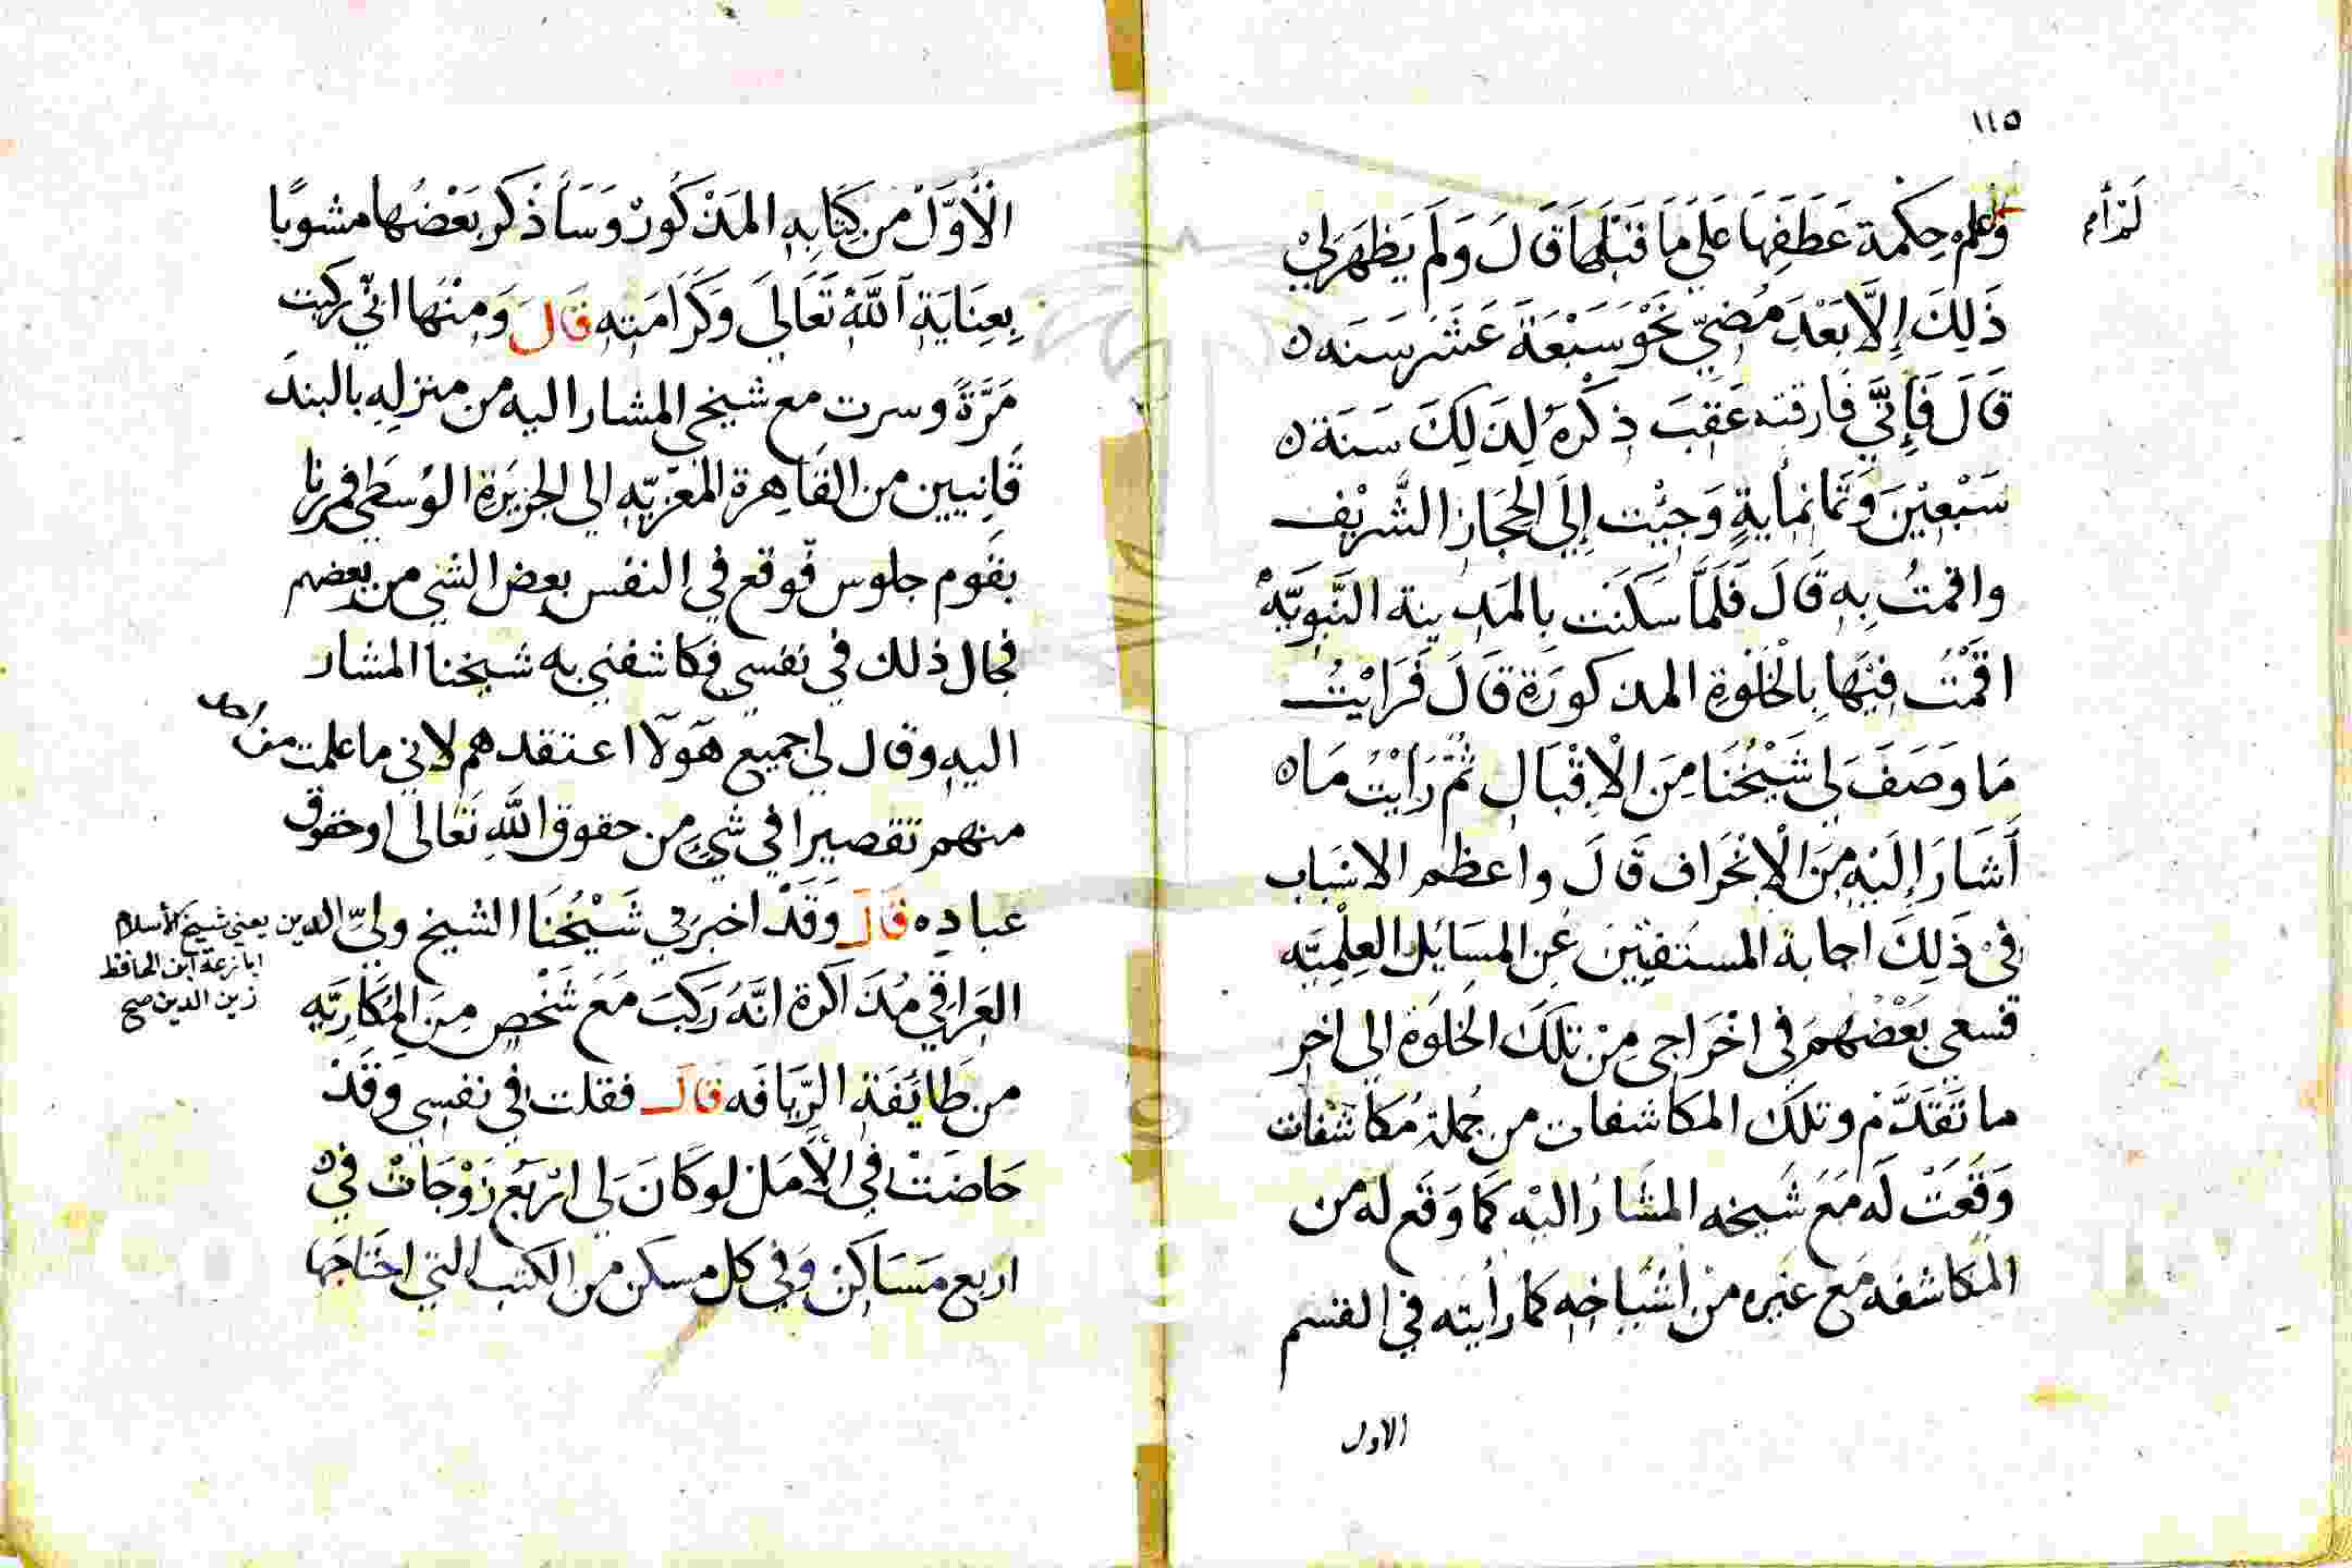 ١١٥
وَاعلم حِكمة عَطَفِهَا عَلَي مَا قَبْلَهَا قَالَ وَلَم يَظهَر لِيْ
ذَلِكَ إِلَّا بَعْدَ مُضيّ نَحْوَ سَبْعَةَ عَشَرَ سَنَه ٥
قَالَ فَإِنّي فَارقته عَقِبَ ذِكْرِهُ لِذَلِكَ سَنَة ٥
سَبْعِيْنَ وَثَمَانمأيةٍ وَجِيْت إِلَى الحِجَاز الشَّريْف
واقمتُ بِهِ قَالَ فَلَمَّا سَكَنَت بِالمَدِينة النَّبَوِيَّهْ
اقَمْتُ فِيْهَا بِالْخَلْوَةِ المذكورَةِ قَالَ فَرَايْتُ
مَا وَصَفَ لِي شَيْخُنَا مِنَ الْاِقْبَالِ ثُمَّ رَايْتُ مَا ٥
أَشَارَ إِلَيْهِ مِنَ الْاِنْحَرَاف قَالَ واعظم الاسْبَاب
فِيْ ذَلِكَ اجابة المستفتِيْنَ عَنِ المسَايُل العِلْمِيَّه
فسعى بَعْضُهمَ فِى اخْرَاجى مِنْ تلكَ الخلوَةِ الى اخر
ما تَقَدَّمَ وتلكَ المكاشفات من جُملة مُكَاشَفات
وَقَعَتْ لَه مَعَ شَيخه المشَارُ اليْه كَمَا وَقَع له من
المكاشفه مَع غَيره منْ أشيَاخِه كما رأيته في القسم
الاول
الْأَوَّلْ من كِتَابِهِ المَذْكُورْ وَسَأذْكر بَعْضُها مشوبًا
بِعِنَايَةِ اللَّهُ تَعَالَى وَكَرَامَتِه قَالَ وَمِنْهَا انّي ركبت
مَرَّةً وسرت مع شيخي المشار اليه من منزلِهِ بالبند
قَانِيين من القَاهِرة المُعَزيّه الى الجزيرَةِ الوُسطَي فمررنا
بقَوم جلوس فوقع في النفس بعض الشي من بعضهم
فجال ذلك في نفسي فكاشفني به شيخنا المشار
اليهِ وقال لي جميع هَوَلآ اعتقدهم لاني ما علمت من احد
منهم تقصيرا في شيٍ من حقوق اللَّهِ تَعَالى اوحقوق
عبادِه قَالَ وَقَدْ اخبرَني شَيْخُنَا الشيخ وليّ الدين يعني شيخ الأسلام
ابا زرعة ابن الحافظ
زين الدين صح
العَراقي مُذَاكَرة انَّهُ رَكِبَ مَعَ شَخْصٍ مِنَ المُكَارِيَّهِ
من طَائفَةِ الرَّيَافَه قَالَ فقلت في نفسي وقَدْ
خاضَتْ في الْأَمَل لو كَانَ لي ارْبَعُ زَوْجَاتْ فيْ
اربع مَسَاكن وَفي كل مسكن من الكتب التي احْتَاجَها